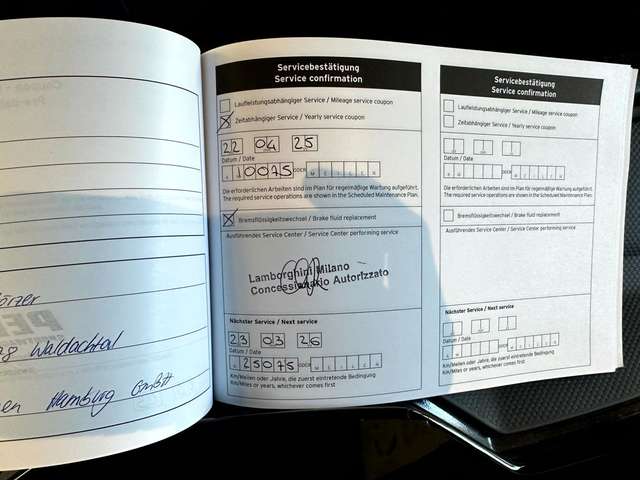 Waldachtal
Hamburg GmbH
Servicebestätigung
Service confirmation
Laufleistungsabhängiger Service / Mileage service coupon
Zeitabhängiger Service / Yearly service coupon
22 04 25
Datum / Date
10075 ODER M E I L E N
Die erforderlichen Arbeiten sind im Plan für regelmäßige Wartung aufgeführt.
The required service operations are shown in the Scheduled Maintenance Plan.
Bremsflüssigkeitswechsel / Brake fluid replacement
Ausführendes Service Center / Service Center performing service
Lamborghini Milano
Concessionario Autorizzato
Nächster Service / Next service
23 03 26
Datum / Date
25075 ODER M E I L E N
Km/Meilen oder Jahre, die zuerst eintretende Bedingung
Km/Miles or years, whichever comes first
Servicebestätigung
Service confirmation
Laufleistungsabhängiger Service / Mileage service coupon
Zeitabhängiger Service / Yearly service coupon
Datum / Date
K M ODER M E I L E N
Die erforderlichen Arbeiten sind im Plan für regelmäßige Wartung aufgeführt.
The required service operations are shown in the Scheduled Maintenance Plan.
Bremsflüssigkeitswechsel / Brake fluid replacement
Ausführendes Service Center / Service Center performing service
Nächster Service / Next service
Datum / Date
K M ODER M E I L E N
Km/Meilen oder Jahre, die zuerst eintretende Bedingung
Km/Miles or years, whichever comes first